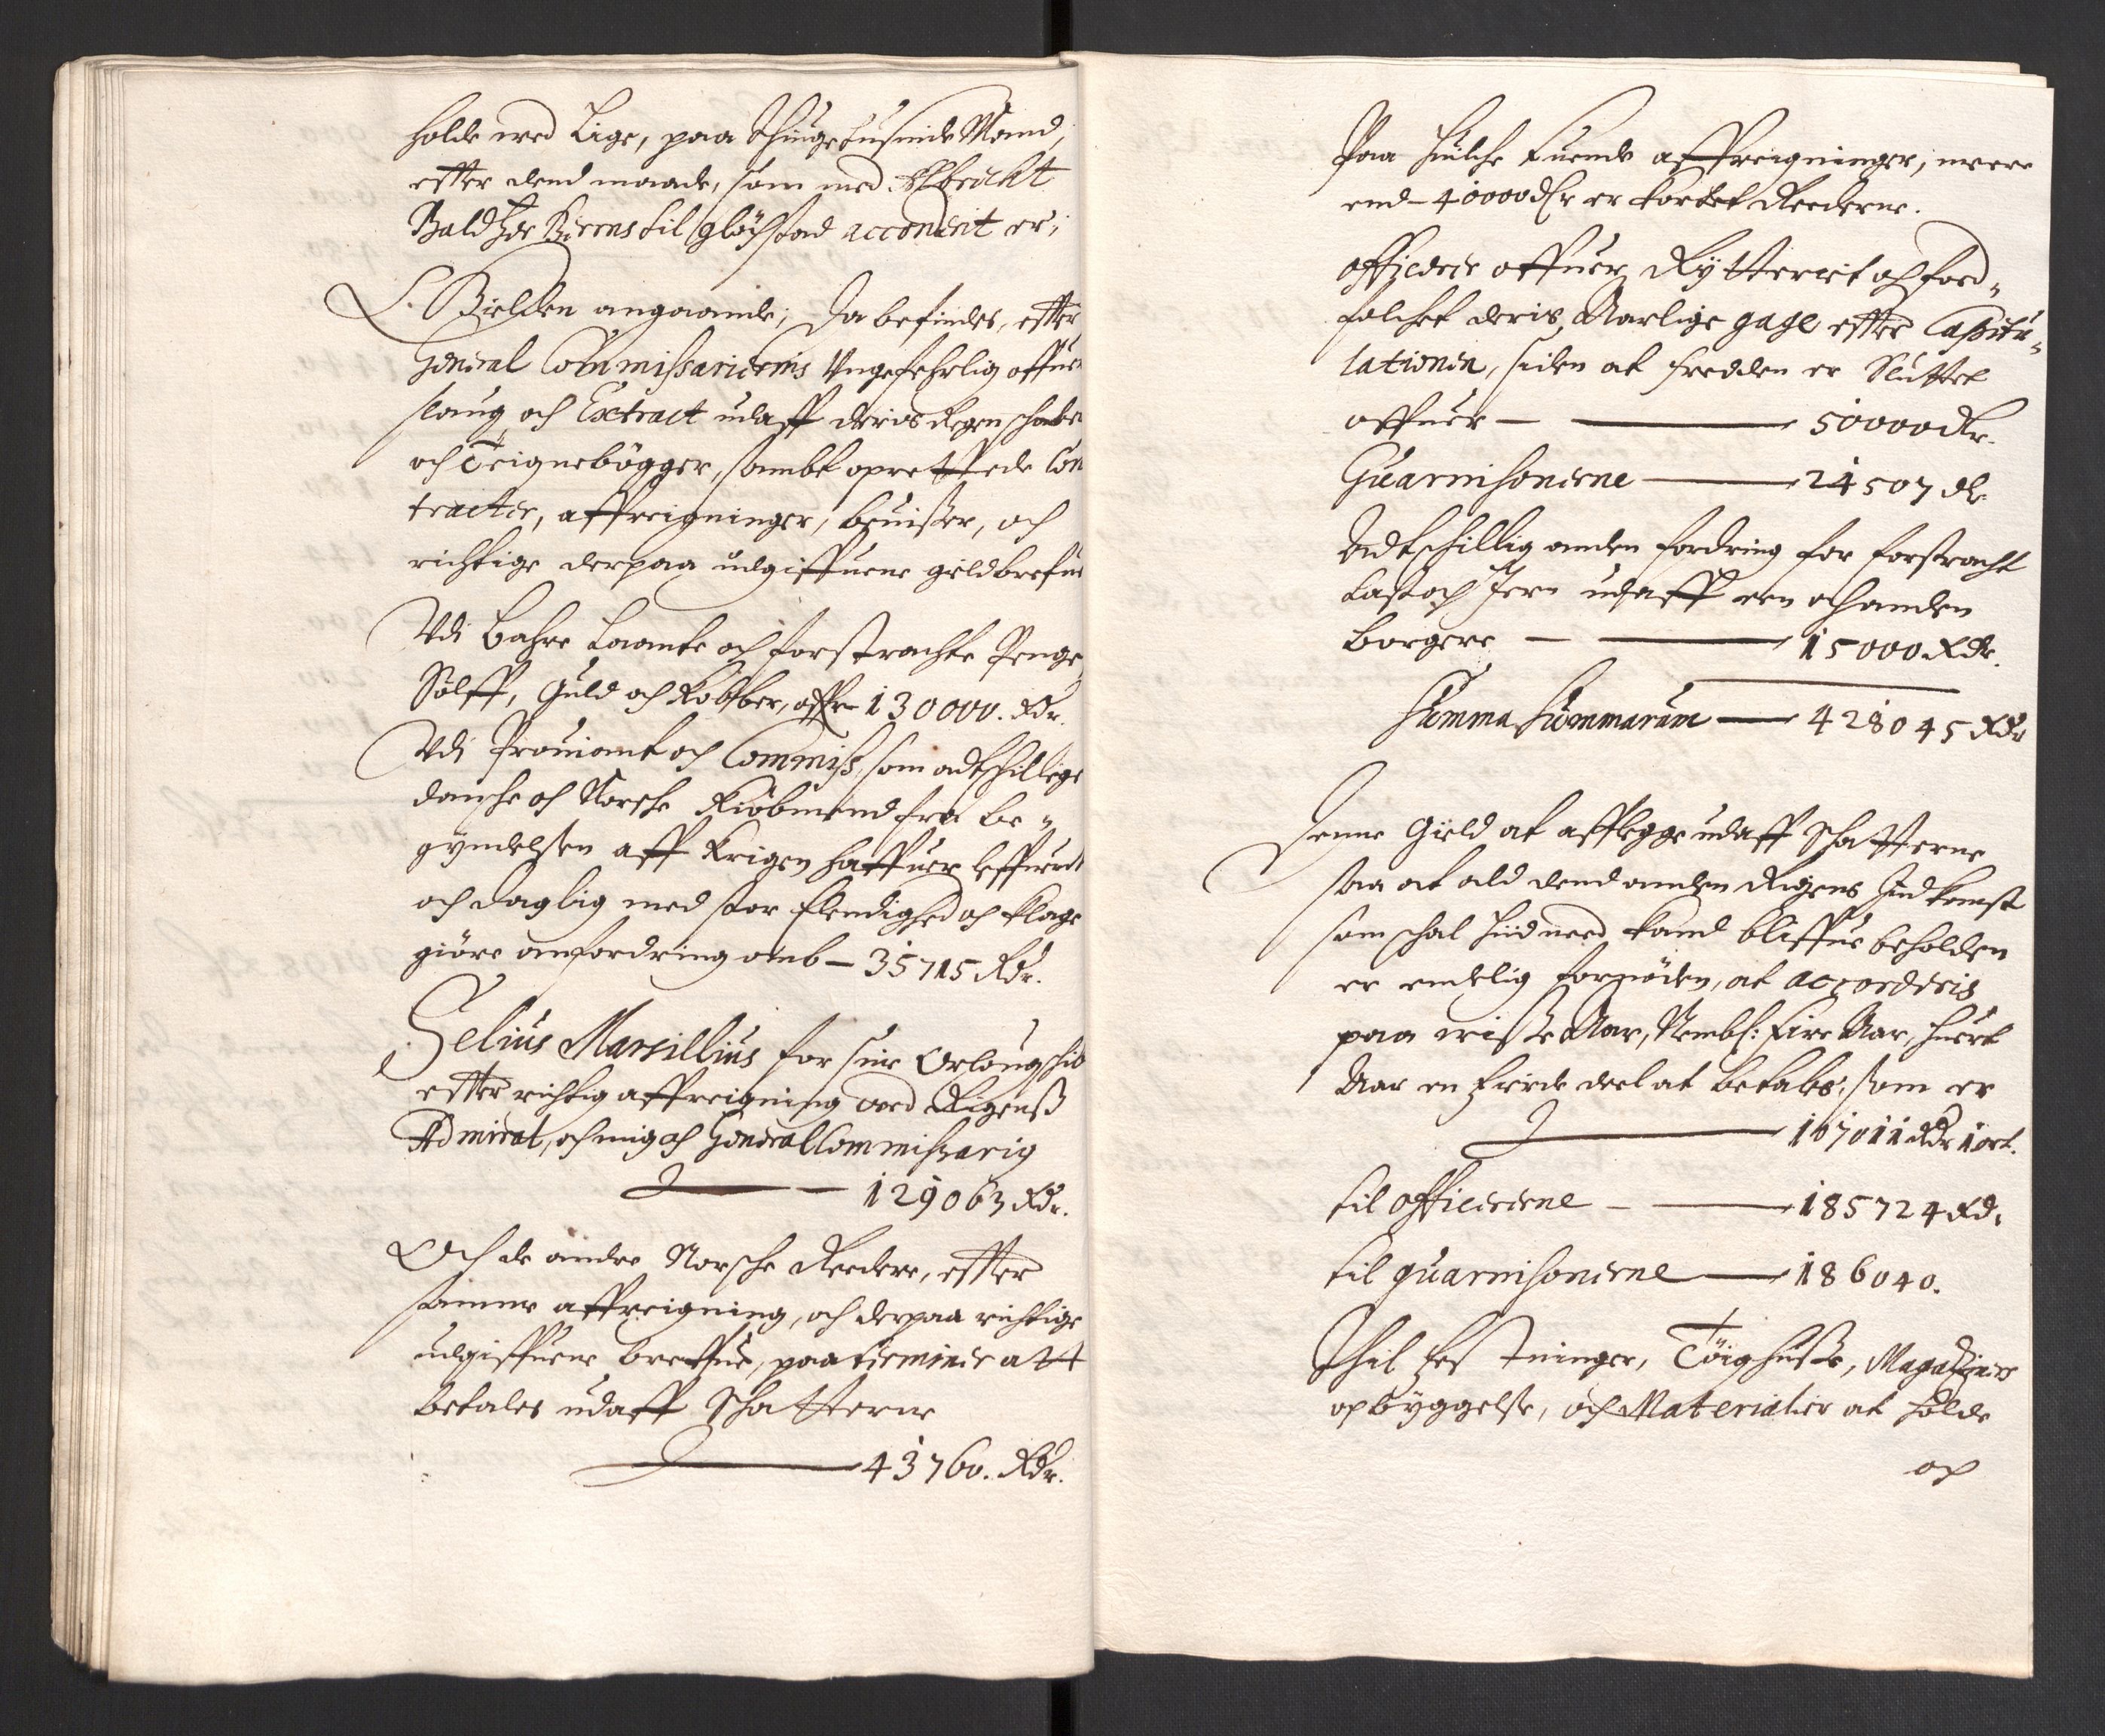 holde wed Lige, paa thiuge tusinde Mand,
effter dend maade, som med Albrecht
Baldtzer Berns til Glöchstad accorderit er;
Gielden angaaende; Da befindes, effter
General Commissariernis Ungefehrlig offuer
slaug, och Extract udaff deris Regenschaber
och Teignebögger, sambt oprettede Con
tracter, affreigninger, beuisser, och
richtige derpaa udgiffuene gieldbrefue
Udi Bahre Laante och forstrachte Penge,
Sölff, Guld och Kobber, offr 130000. Rdr.
Udi Prouiant och Commiss, som adschillige
dansche och Norsche Kiöbmend fra be-
gyndelsen aff Krigen haffuer leffuerit
och daglig med stor Elendighed och Klage
giöre anfordring omb — 35715 Rdr.
Selius Marsillius for sine Orlougschib
effter richtig affreigning wed Rigenss
Admiral, och mig och General Commissarig
— 129063 Rdr.
Och de andre Norsche Reedere, effter
samme affreigning, och derpaa richtige
udgiffuene breffue, paa terminer att
betales udaff Schatterne
— 43760. Rdr.
Paa huilche tuende affreigninger, meere
end 40000 dlr er kortet Reederne.
Officerer offuer Rytteriet och fod-
folchet deris Aarlige gage effter Capitu-
lationen, siden at freden er Sluttet
offuer — 50000 Rdr.
Guarnisonerne — 24507 dlr
Adtschillig anden fordring for forstracht
Last och Jern udaff een och anden
borgere — 15000 Rdr.
Summa Summarum — 428045 Rdr
Denne Gield at afflegge udaff Schatterne
saa at ald dend anden Rigens Indkomst
som schal hid need kand bliffue beholden
er endelig fornöden, at accorderis
paa wisse Aar, Nembl: fire Aar, huert
Aar en fierde deel at betales, som er
— 107011 Rdr 1 ort.
til Officererne — 185724 Rd.
til guarnisonerne — 186040.
Thil festninger, Töighusse, Magatziner
opbyggelse, och Materialier at holde
op